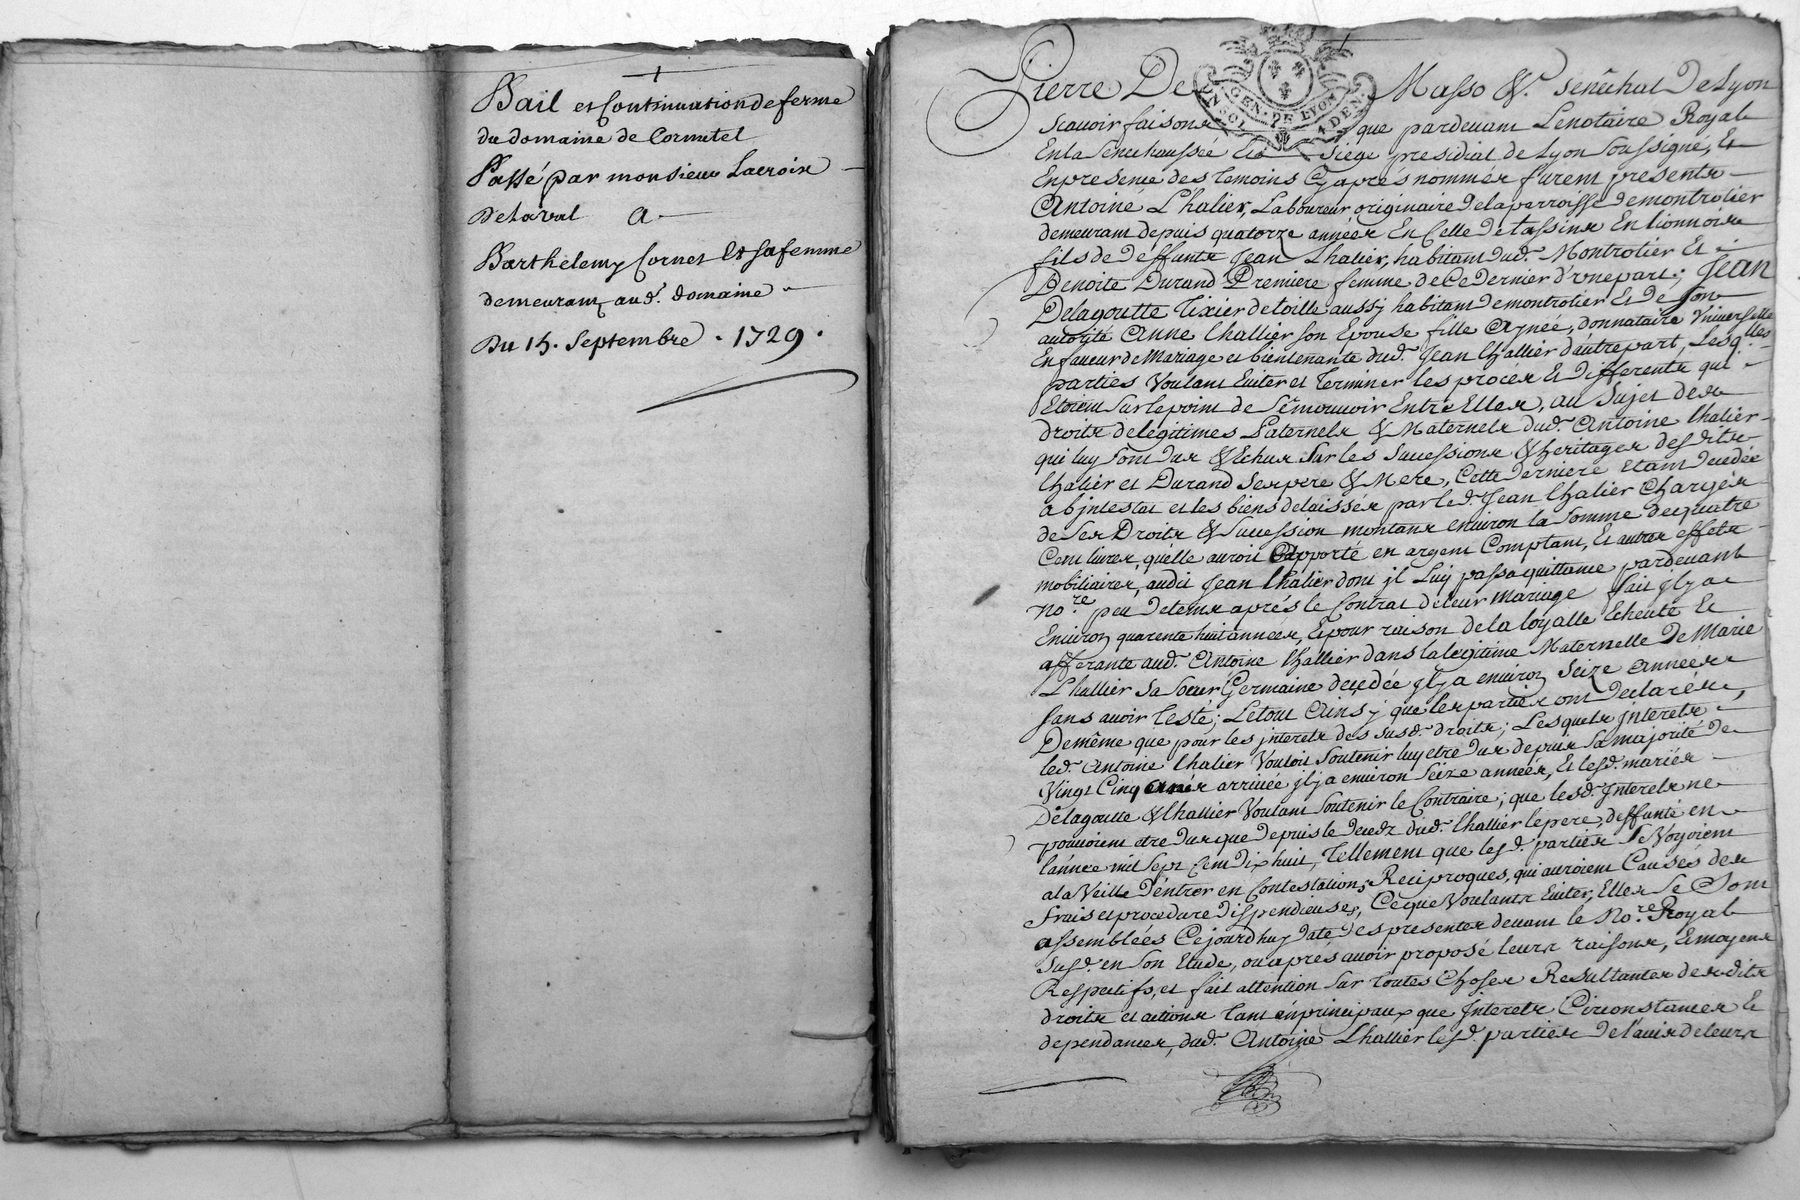 Bail et Continuation de ferme
du domaine de Cornutel
Passé par monsieur Lacroix
Delaval A
Barthelemy Cornet Et sa femme
demeurant aud. domaine
Du 15. Septembre . 1729 .
Pierre De Masso &c. senechal De Lyon
GEN. DE LYON
Scavoir faisons que pardevant Lenotaire Royal
En la Senechaussée Et Siege presidial de Lyon Soussigné, Et
En presence des temoins Cy aprés nommés furent presents
Antoine Lhalier, Laboureur originaire de la parroisse de montrotier
demeurant depuis quatorze années En Celle de tassins En lionnois
fils de deffunts Jean Lhalier, habitant dud. Montrotier Et
Benoite Durand Premiere femme de Ce Dernier d'vne part; Jean
Delagoutte Tixier de toille aussy habitant de montrotier Et de Son
autorité Anne Challier son Epouse fille Aynée, donnataire Vniverselle
En faveur de Mariage et bientenante dud. Jean Challier d'autre part, Lesqlles
parties Voulant Euiter et Terminer les procés Et differents qui
Etoient Sur le point de S'émouvoir Entre Elles, au Sujet des
droits de legitimes Paternels & Maternels dud. Antoine Chalier
qui luy Sont dus & Echus Sur les Successions & heritages desdits
Chalier et Durand Ses pere & Mere, Cette derniere Etant decedée
abjntestat et les biens delaissés par led. Jean Chalier Chargés
de Ses Droits & Succession montans environ la Somme de quatre
Cent livres, qu'elle auroit Apporté en argent Comptant, Et autres effets
mobiliaires, audit Jean Chalier dont jl Luy passa quittance pardevant
No.re peu de tems aprés le Contrat de leur Mariage fait jl y a
Environ quarente huit années, Et pour raison de la loyalle Echeute Et
afferante aud. Antoine Challier dans la legitime Maternelle De Marie
Lhallier Sa Soeur Germaine decedée jl y a environ Seize années
Sans avoir testé; Le tout Ainsy que les parties ont declaré,
De même que pour les jnterets des susd. droits; Lesquels jnterets
led. Antoine Chalier Vouloit Soutenir luy etre dus depuis Sa majorité de
Vingt Cinq ans arrivée jl y a environ Seize années, Et lesd. mariés
Delagoutte & Challier Voulant Soutenir le Contraire; que lesd. Jnterets ne
pouvoient etre dus que Depuis le decedz dud. Challier le pere, deffunté en
l'année mil Sept Cent Dix huit, Tellement que lesd. parties Se Voyoient
a la Veille D'entrer en Contestations Reciproques, qui auroient Causés des
frais et procedure dispendieuses, Ce que Voulants Euiter, Elles Se Sont
assemblées Cejourd'huy date des presentes devant le No.re Royal
Susd. en Son Etude, ou aprés avoir proposé leurs raisons, Et moyens
Respectifs, et fait attention Sur toutes Choses Resultantes desdits
droits et actions tant en principaux que Jnterets Circonstances Et
dependances, dud. Antoine Lhallier lesd. parties De l'avis de leurs